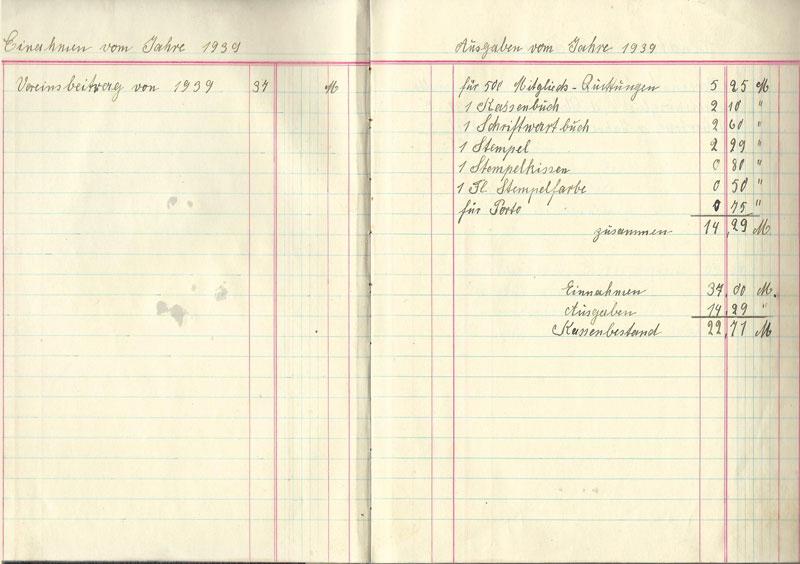 Einahmen vom Jahre 1939
Vereinsbeitrag von 1939 37 M
Ausgaben vom Jahre 1939
für 500 Mitglieds-Quittungen 5 25 M
1 Kassenbuch 2 10 "
1 Schriftwartbuch 2 60 "
1 Stempel 2 29 "
1 Stempelkissen 0 80 "
1 Fl. Stempelfarbe 0 50 "
für Porto 0 75 "
zusammen 14,29 M
Einnahmen 37,00 M.
Ausgaben 14,29 "
Kassenbestand 22,71 M